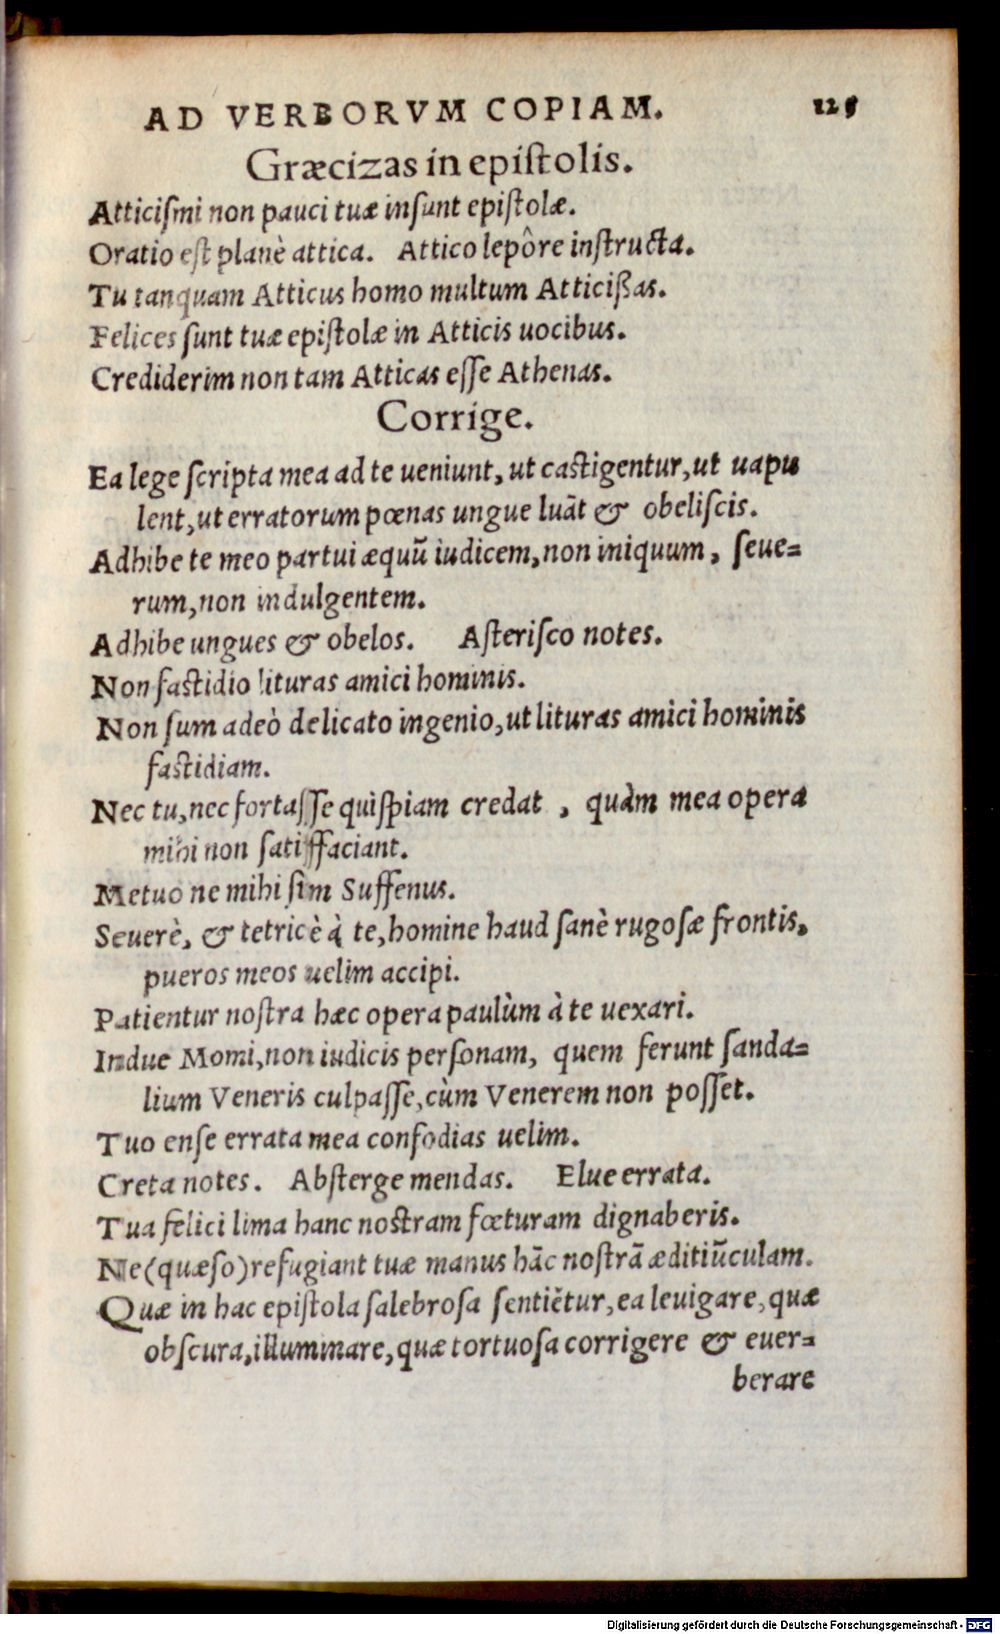 AD VERBORVM COPIAM. 125
Græcizas in epistolis.
Atticiſmi non pauci tuæ inſunt epiſtolæ.
Oratio eſt planè attica. Attico lepôre inſtructa.
Tu tanquam Atticus homo multum Atticißas.
Felices ſunt tuæ epiſtolæ in Atticis uocibus.
Crediderim non tam Atticas eſſe Athenas.
Corrige.
Ea lege ſcripta mea ad te ueniunt, ut caſtigentur, ut uapu
lent, ut erratorum pœnas ungue luāt & obeliſcis.
Adhibe te meo partui æquū iudicem, non iniquum, ſeue=
rum, non indulgentem.
Adhibe ungues & obelos. Aſteriſco notes.
Non faſtidio lituras amici hominis.
Non ſum adeò delicato ingenio, ut lituras amici hominis
faſtidiam.
Nec tu, nec fortaſſe quiſpiam credat , quàm mea opera
mihi non ſatiſfaciant.
Metuo ne mihi ſim Suffenus.
Seuerè, & tetricè à te, homine haud ſanè rugoſæ frontis,
pueros meos uelim accipi.
Patientur noſtra hæc opera paulùm à te uexari.
Indue Momi, non iudicis perſonam, quem ferunt ſanda=
lium Veneris culpaſſe, cùm Venerem non poſſet.
Tuo enſe errata mea confodias uelim.
Creta notes. Abſterge mendas. Elue errata.
Tua felici lima hanc noſtram fœturam dignaberis.
Ne (quæſo) refugiant tuæ manus hāc noſtrā æditiūculam.
Quæ in hac epiſtola salebroſa ſentiētur, ea leuigare, quæ
obſcura, illuminare, quæ tortuoſa corrigere & euer=
berare
Digitalisierung gefördert durch die Deutsche Forschungsgemeinschaft - DFG